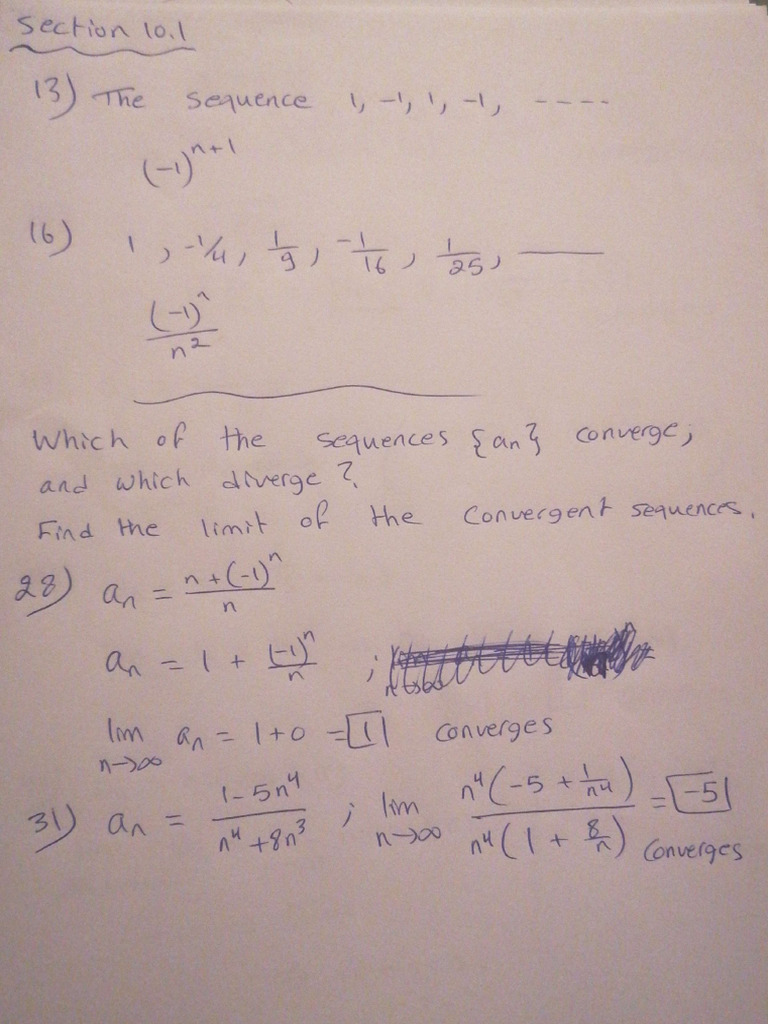 Section 10.1
13) The sequence 1, -1, 1, -1, ----
(-1)^{n+1}
16) 1, -1/4, \frac{1}{9}, \frac{-1}{16}, \frac{1}{25}, ——
\frac{(-1)^n}{n^2}
Which of the sequences {an} converge,
and which diverge?
Find the limit of the convergent sequences.
28) a_n = \frac{n+(-1)^n}{n}
a_n = 1 + \frac{(-1)^n}{n} ;
\lim_{n→∞} a_n = 1+0 = 1 converges
31) a_n = \frac{1-5n^4}{n^4+8n^3} ; \lim_{n→∞} \frac{n^4(-5+\frac{1}{n^4})}{n^4(1+\frac{8}{n})} = -5
converges